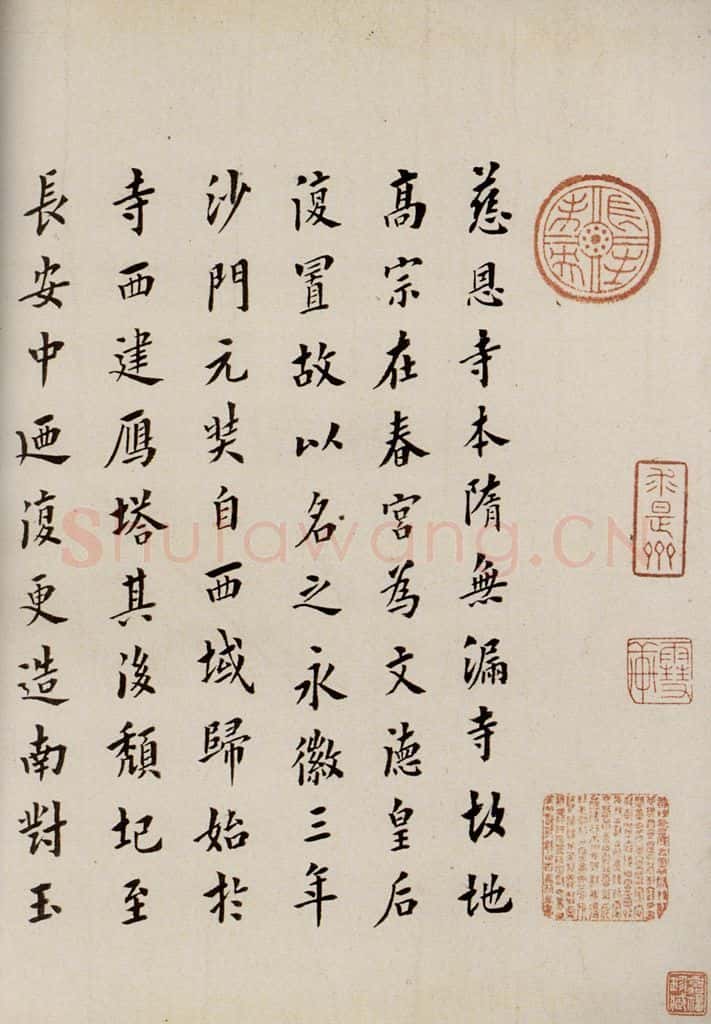 慈恩寺本隋無漏寺故地
高宗在春宮為文德皇后
復置故以名之永徽三年
沙門元奘自西域歸始於
寺西建鴈塔其後頹圮至
長安中迺復更造南對玉
Shufawang.CN